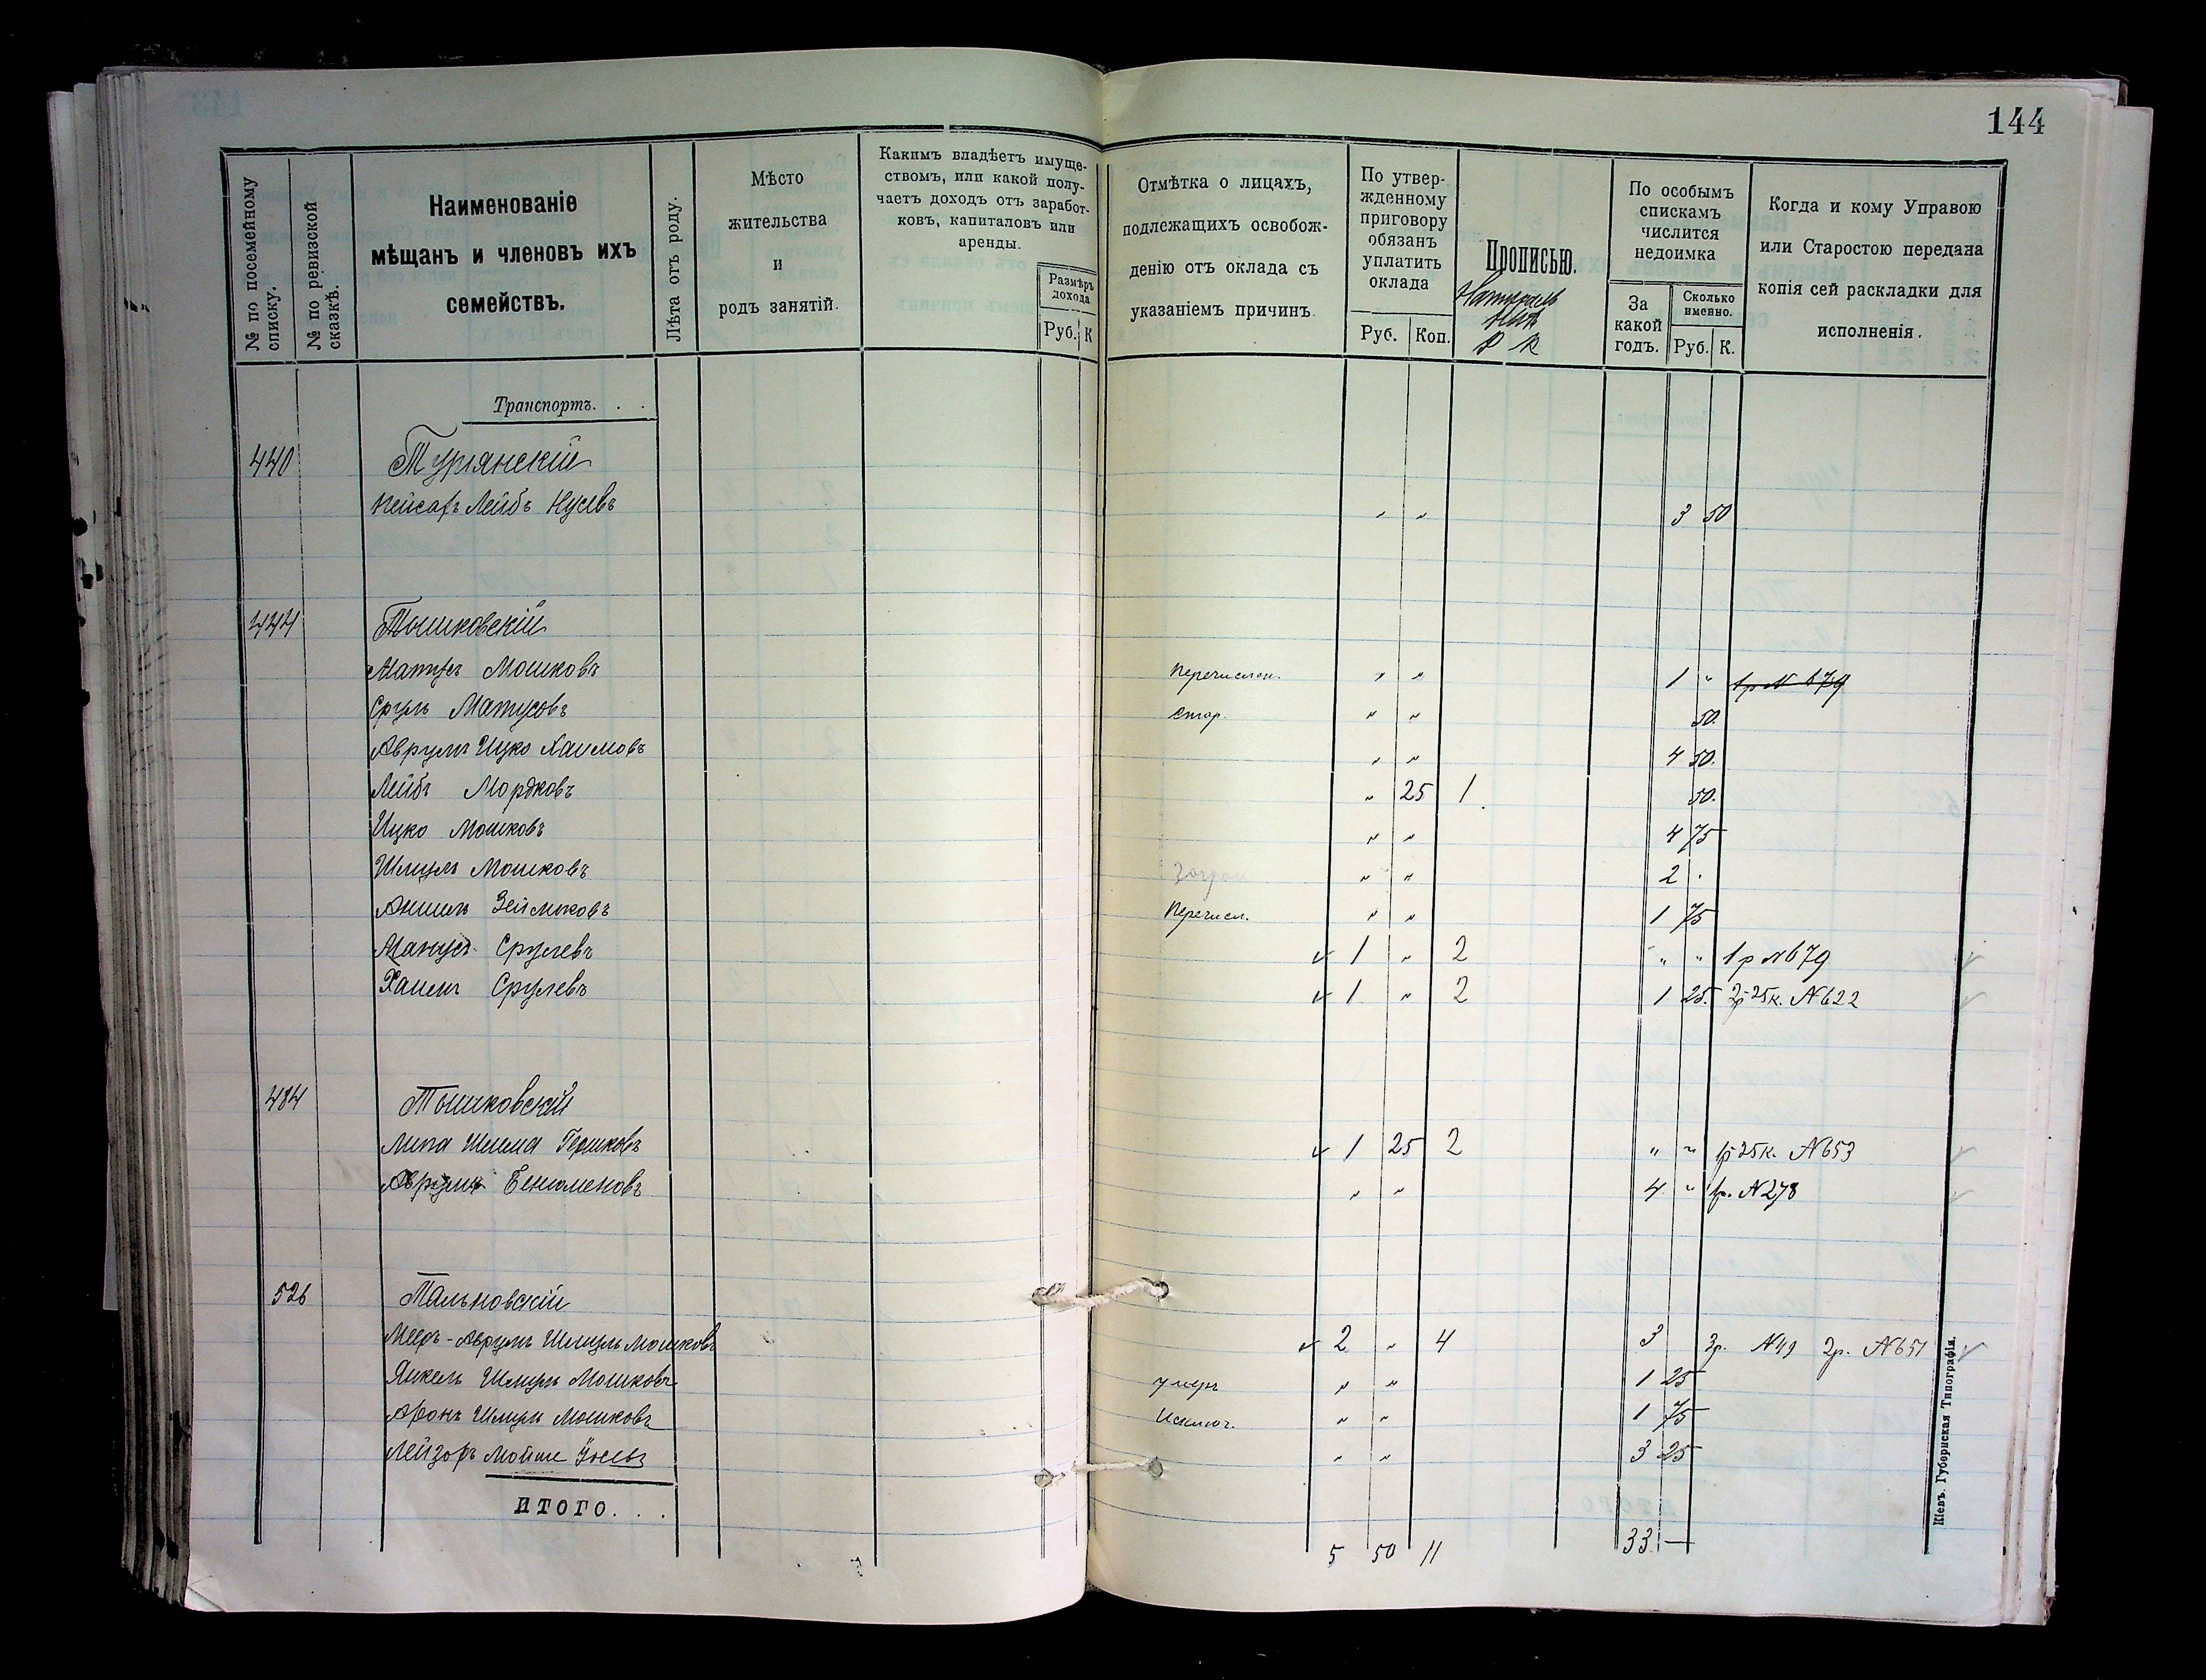 144
№ по посемейному списку.
№ по ревизской сказкѣ.
Наименованіе
мѣщанъ и членовъ ихъ
семействъ.
Лѣта отъ роду.
Мѣсто
жительства
и
родъ занятій.
Какимъ владѣетъ имуще-
ствомъ, или какой полу-
чаетъ доходъ отъ заработ-
ковъ, капиталовъ или
аренды.
Размѣръ
дохода
Руб. К
Отмѣтка о лицахъ,
подлежащихъ освобож-
денію отъ оклада съ
указаніемъ причинъ
По утвер-
жденному
приговору
обязанъ
уплатить
оклада
Руб. Коп.
Прописью.
Р К
По особымъ
спискамъ
числится
недоимка
За
какой
годъ.
Сколько
именно.
Руб. К.
Когда и кому Управою
или Старостою передана
копія сей раскладки для
исполненія.
Транспортъ. . .
440 Турянскій
Пейсахъ Лейбъ Нусевъ " " 3 50
444 Тышковскій
Матусъ Мошковъ Перечислен. " " 1 " 1р N 679
Сруль Матусовъ стар. " " 50.
Аврумъ Ицко Хаимовъ " " 4 50.
Лейбъ Мордковъ " 25 1. 50.
Ицко Мошковъ " " 4 75
Шмуль Мошковъ " " 2 "
Аншель Зейликовъ Перечисл. " " 1 75
Манусъ Срулевъ ✓ 1 " 2 " " 1 р N 679
Хаимъ Срулевъ ✓ 1 " 2 1 25. 2р 25к. N 622
484 Тышковскій
Липа Шлема Гершковъ ✓ 1 25 2 " " 1р 25к. N 653
Аврумъ Беньоменовъ " " 4 " 1р. N 278
526 Тальновскій
Мееръ-Аврумъ Шмуль Мошковъ ✓ 2 " 4 3 3р. N 49 2р. N 651
Янкель Шмуль Мошковъ умеръ " " 1 25
Аронъ Шмуль Мошковъ Исключ. " " 1 75
Лейзоръ Мойше Усевъ " " 3 25
ИТОГО. . .
5 50 11 33 —
Кіевъ. Губернская Типографія.